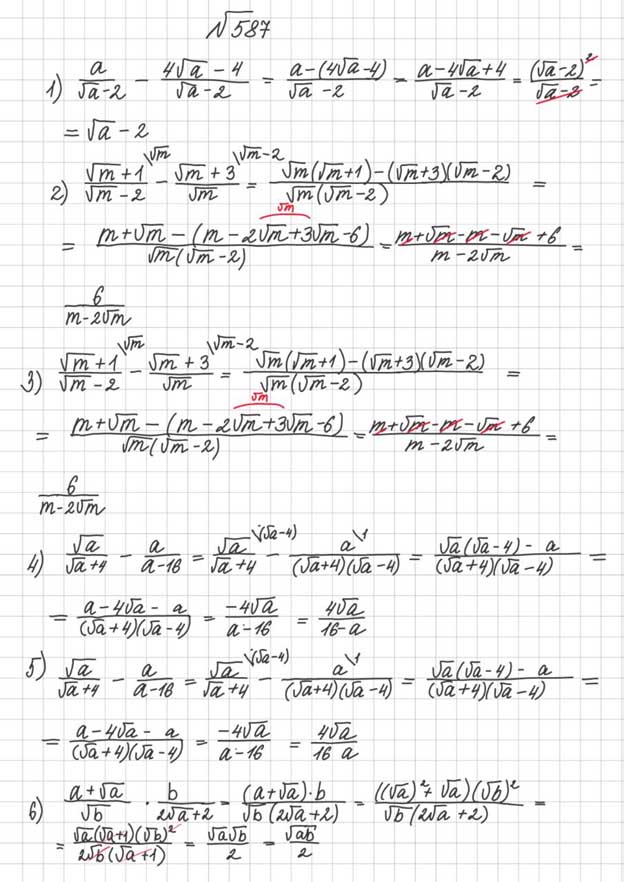 √587
1) a/(√a-2) - (4√a-4)/(√a-2) = (a-(4√a-4))/(√a-2) - (a-4√a+4)/(√a-2) = (√a-2)²/(√a-2) =
= √a-2
2) (√m+1)/(√m-2) \√m - (√m+3)/√m \√m-2 = (√m(√m+1)-(√m+3)(√m-2))/(√m(√m-2)) =
√m
= (m+√m-(m-2√m+3√m-6))/(√m(√m-2)) = (m+√m-m-√m+6)/(m-2√m) =
6/(m-2√m)
3) (√m+1)/(√m-2) \√m - (√m+3)/√m \√m-2 = (√m(√m+1)-(√m+3)(√m-2))/(√m(√m-2)) =
√m
= (m+√m-(m-2√m+3√m-6))/(√m(√m-2)) = (m+√m-m-√m+6)/(m-2√m) =
6/(m-2√m)
4) √a/(√a+4) - a/(a-16) = √a/(√a+4) \(√a-4) - a/((√a+4)(√a-4)) \1 = (√a(√a-4)-a)/((√a+4)(√a-4)) =
= (a-4√a-a)/((√a+4)(√a-4)) = -4√a/(a-16) = 4√a/(16-a)
5) √a/(√a+4) - a/(a-16) = √a/(√a+4) \(√a-4) - a/((√a+4)(√a-4)) \1 = (√a(√a-4)-a)/((√a+4)(√a-4)) =
= (a-4√a-a)/((√a+4)(√a-4)) = -4√a/(a-16) = 4√a/(16 a)
6) (a+√a)/√b · b/(2√a+2) = ((a+√a)·b)/(√b(2√a+2)) = (((√a)²+√a)(√b)²)/(√b(2√a+2)) =
= (√a(√a+1)(√b)²)/(2√b(√a+1)) = √a√b/2 = √ab/2